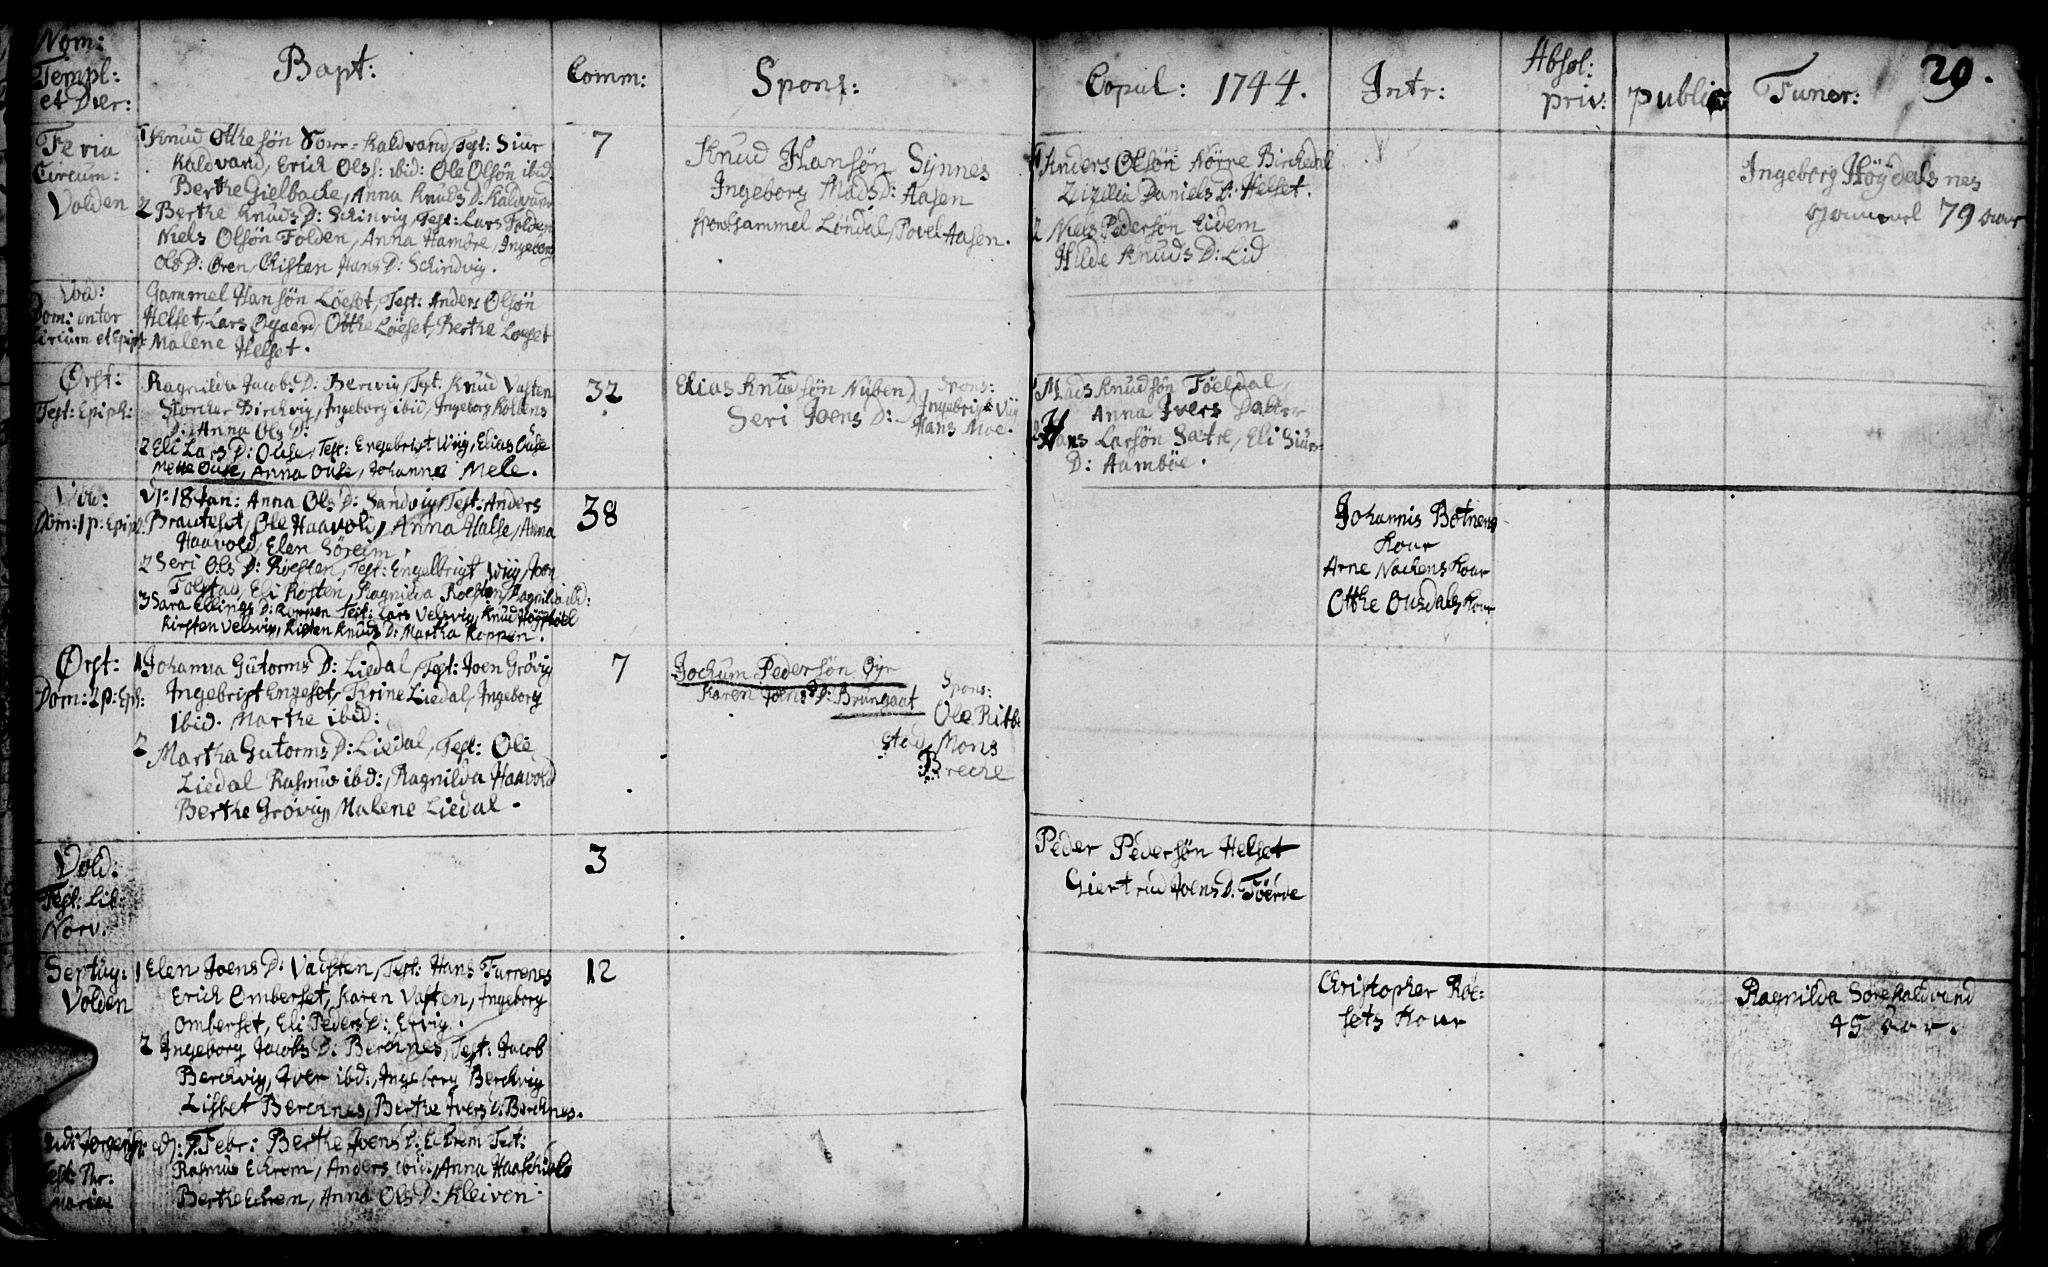 Nom:
Templ:
et Dier:
Bapt:
Comm:
Spons:
Copul: 1744.
Intr:
Absol:
priv:
public
Funer:
29.
Feria
Circum:
Volden
1 Knud Othesøn Kaldvand, Test: Siur
Kaldvand, Erich Olss: ibid: Ole Olsøn ibid:
Berthe Gielbache, Anna Knuds D: Kaldvand
2 Berthe Knuds D: Schinvig, Test: Lars Folden
Niels Olsøn Folden, Anna Hambre, Ingeborg
Ols D: Øren, Christen Hans D: Schindvig.
7
Knud Hansøn Synnes
Ingeborg Mads D: Aasen
Spons: Gammel Løndal, Povel Aasen.
1 Anders Olsøn Nørre Birchedal
Zizilia Daniels D: Helset.
2 Niels Pedersøn Eidem
Hilde Knuds D: Lid
Ingeborg Høydalsnes
gammel 79 aar
Vold:
Dom: inter
Circum et Epiph
Gammel Hansøn Løeset, Test: Anders Olsøn
Helset, Lars Øgaard, Otthe Løeset, Berthe Løeset
Malene Helset.
Ørst:
Fest: Epiph:
Ragnilda Jacobs D: Bervig, Test: Knud Vasten
Storcher Birchvig, Ingeborg ibid, Ingeborg
D: Anna Ols D:
2 Eli Lars D: Ouse, Test: Engebrigt Wiig, Elias Ouse
Mette Ouse, Anna Ouse, Johanne Mele.
32
Elias Knudsøn Nuben
Seri Joens D:
Spons:
Ingebrigt Viig
Hans Moe.
1 Mads Knudsøn Föeldal,
Anna Ivers Datter
2 Hans Larsøn Sætre, Eli Siurs
D: Aambøe.
Vold:
Dom: 1 p: Epiph:
D: 18 Jan: Anna Ols D: Sandvig, Test: Anders
Brauteset, Ole Haavold, Anna Halse, Anna
Haavold, Elen Søreim
2 Seri Ols D: Roesten, Test: Engelbrigt Wiig, Joen
Folstad, Eli Rosten, Ragnilda Rosten, Ragnilda ibid:
3 Sara Ellings D: Koppen Test: Lars Velsvig, Knud
Kirsten Velsvig, Kisten Knuds D: Martha Koppen.
38
Johannis Botnens
Kone
Arne Nachens Kone
Otthe Ousdals Kone
Ørst:
Dom: 2 p: Eph:
1 Johanna Gutorms D: Liedal, Test: Joen Grøvig
Ingebrigt Engeset, Thrine Liedal, Ingeborg
ibid. Marthe ibid:
2 Martha Gutorms D: Liedal, Test: Ole
Liedal Rasmus ibid:, Ragnilda Haavold
Berthe Grøvig, Malene Liedal.
7
Jochum Pedersøn Øye
Karen Joens D: Brungaat
Spons:
Ole Ritte
stad, Mons
Breche
Vold:
Fest: Lib:
Norv.
3
Peder Pedersøn Helset
Giertrud Joens D: Föerde
Septug:
Volden
1 Elen Joens D: Vasten, Test: Hans Furrenes
Erich Omberset, Karen Vasten, Ingeborg
Omberset, Eli Peders D: Ervig.
2 Ingeborg Jacobs D: Berchnes, Test: Jacob
Berchvig, Iver ibid:, Ingeborg Berchvig
Lisbet Berchnes, Berthe Ivers D: Berchnes.
12
Christopher Røe-
sets Kone
Ragnilda Sørekaldvand
45 aar.
Fest: Pur:
Mariæ
d: 7. Febr: Berthe Joens D: Echrem Test:
Rasmus Echrem, Anders ibid:, Anna
Berthe Echrem, Anna Ols D: Kleiven